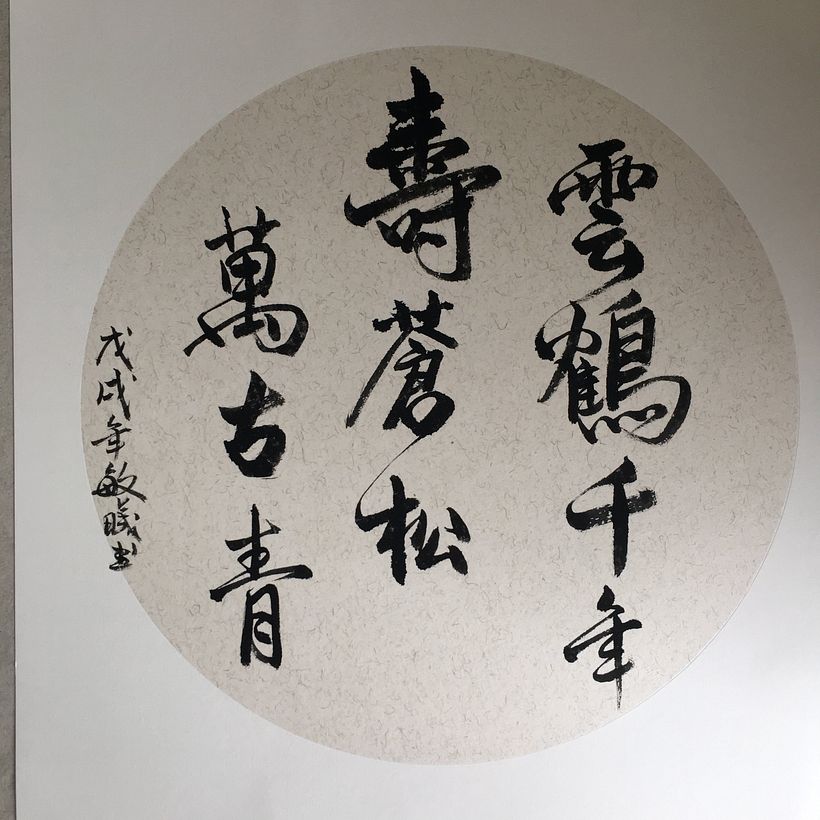 雲鶴千年
壽蒼松
萬古青
戊戌年敏書